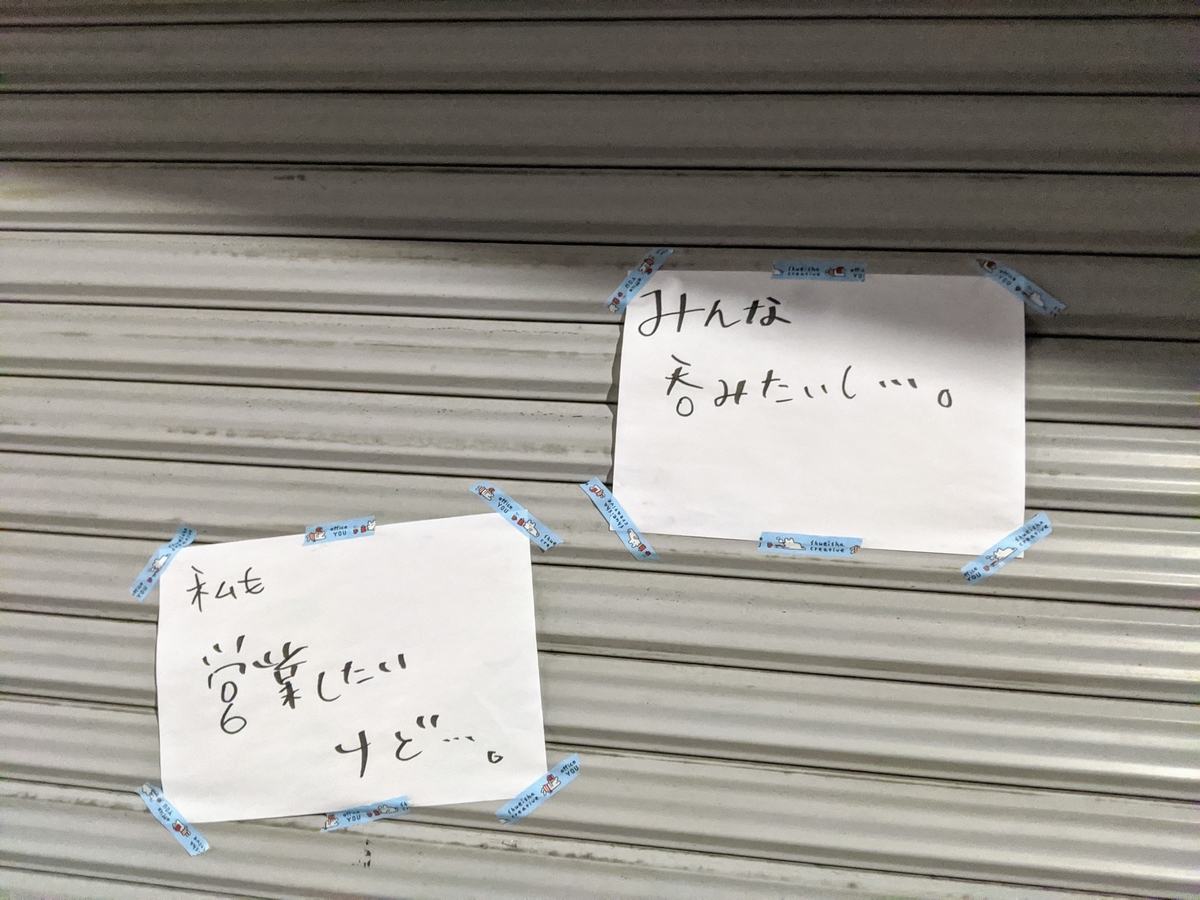 みんな
呑みたいし…。
私も
営業したい
けど…。
shueisha
creative
office
YOU
office
YOU
shueisha
creative
office
YOU
shueisha
creative
office
YOU